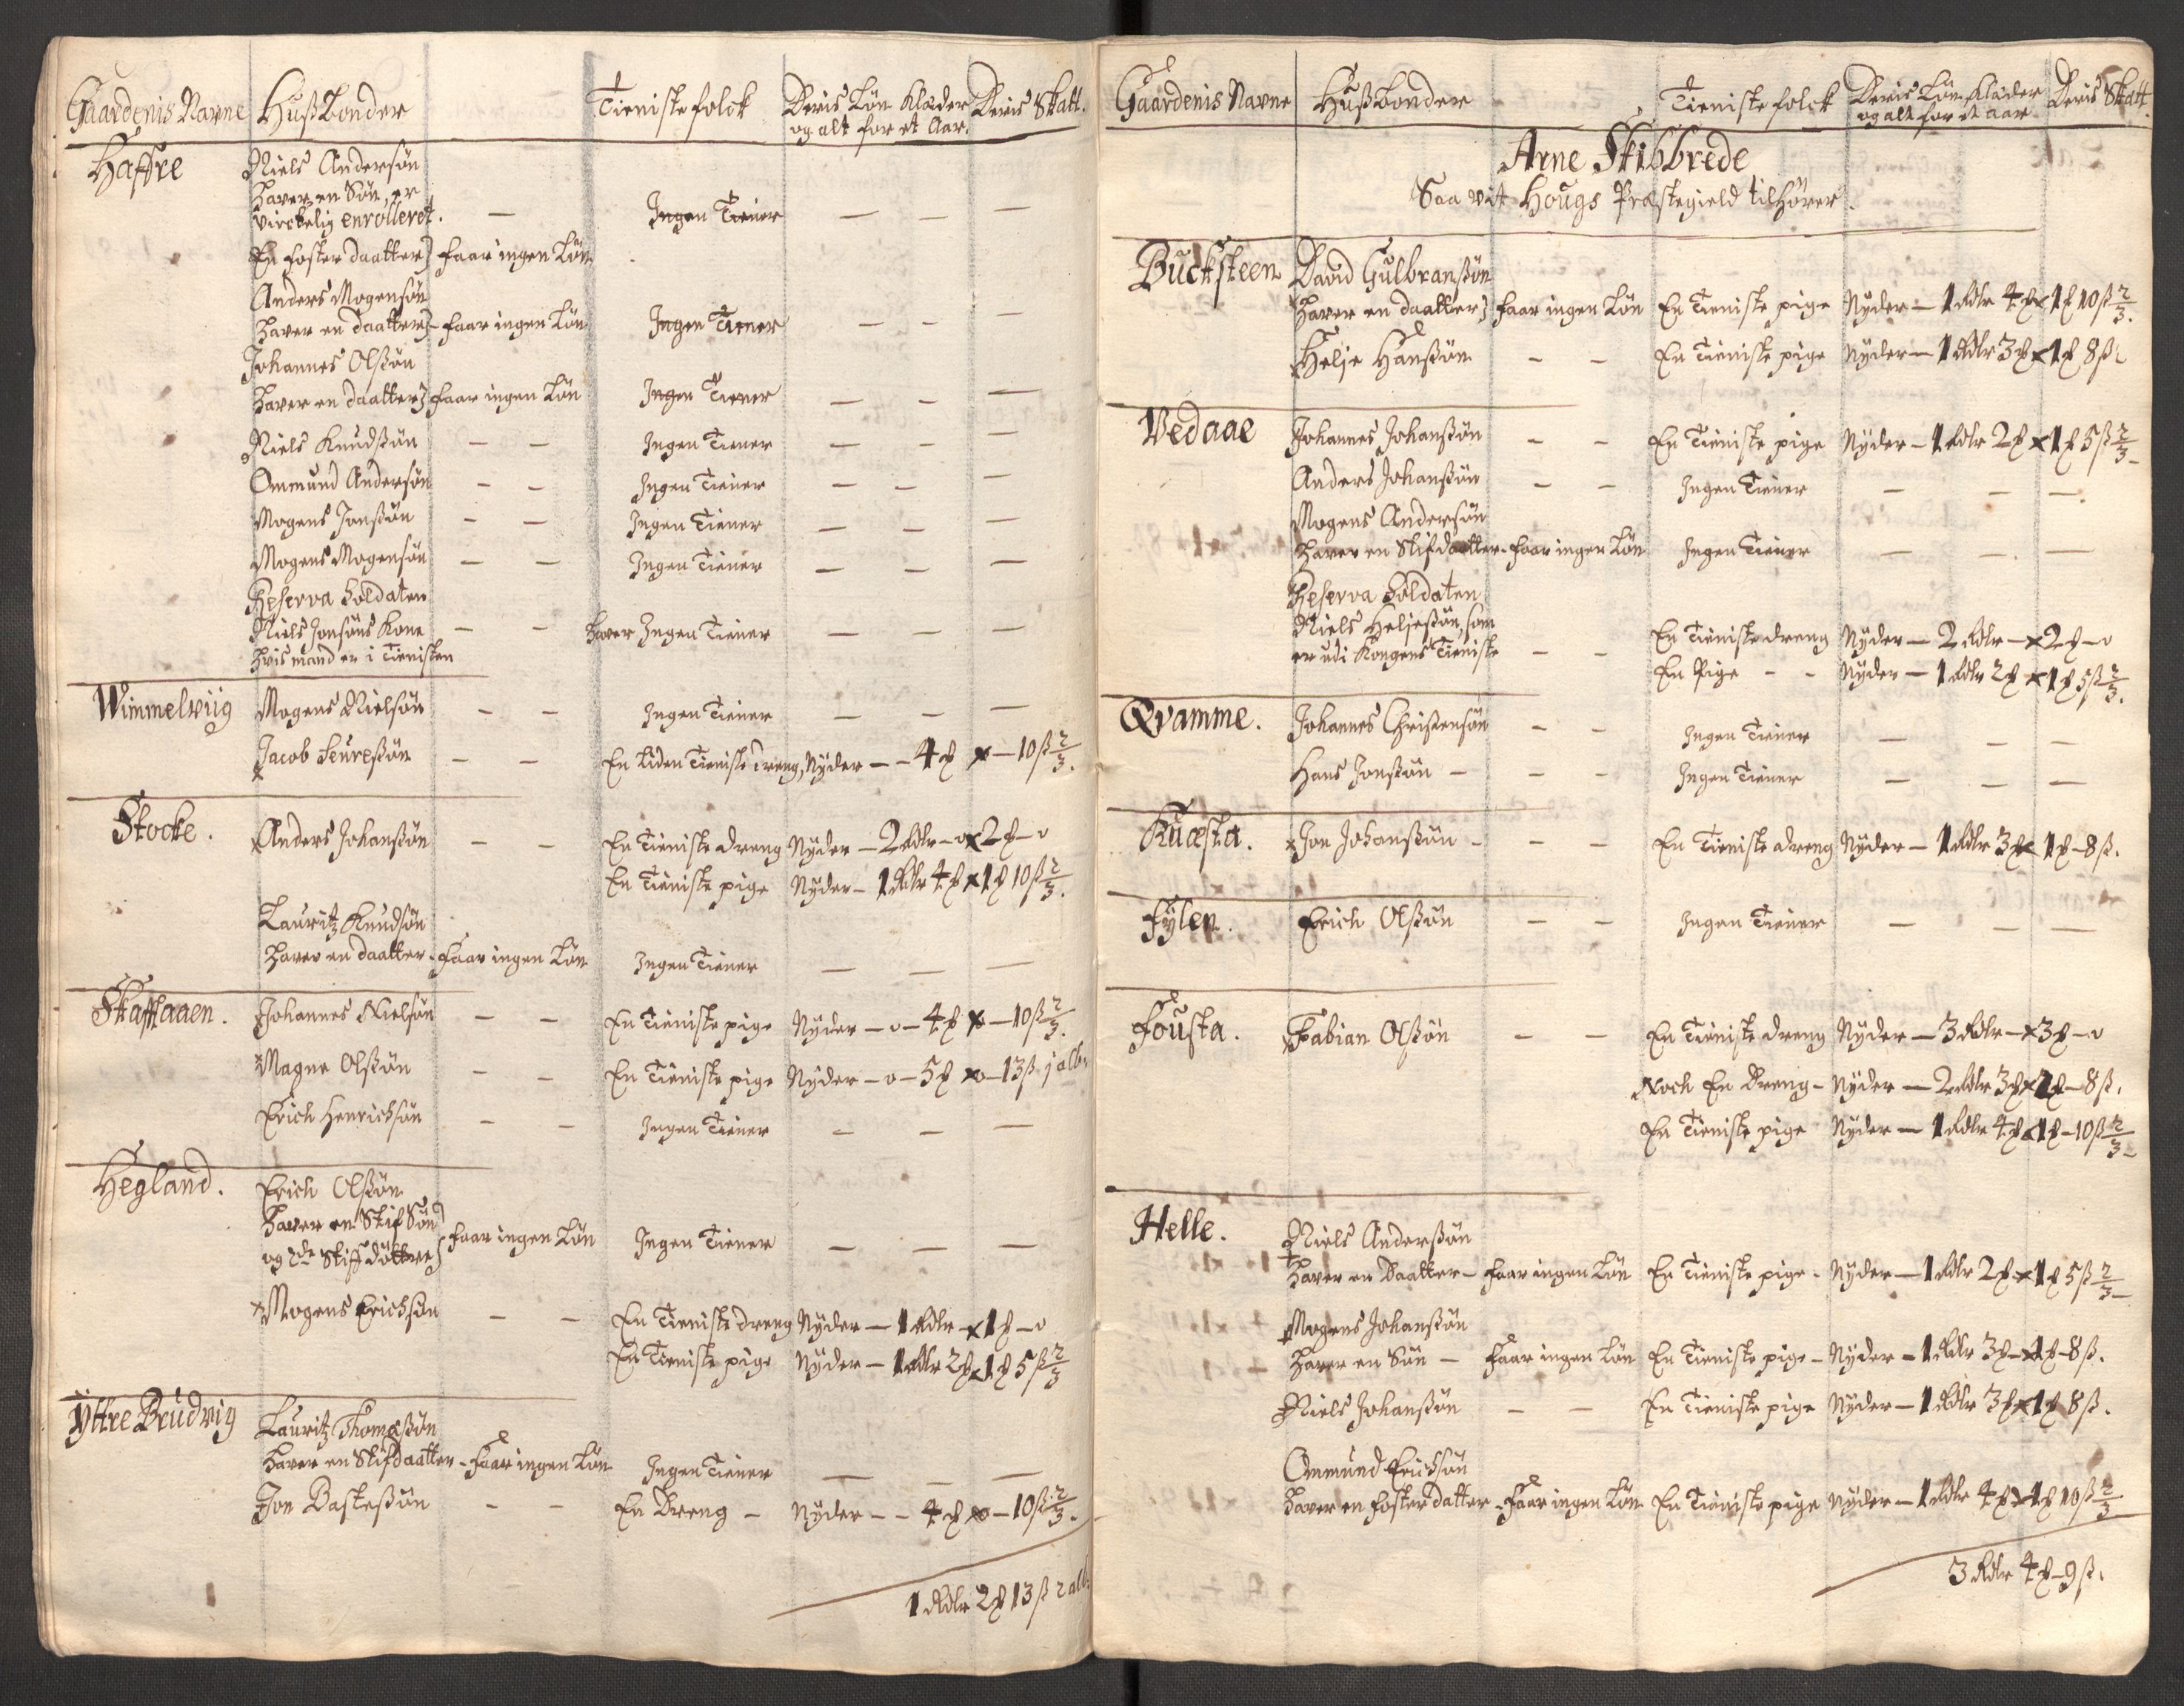 Gaardenis Navne Hußbonder Tieniste folck Deris Løn Klæder og alt for et Aar. Deris Skatt.
Haffre Niels Andersøn
haver en Søn, er
virckelig enrolleret. — Ingen Tiener — — —
En foster daatter} faar ingen Løn
Anders Mogensøn
haver en daatter} faar ingen Løn Ingen Tiener — — —
Johannes Olßøn
haver en daatter} faar ingen Løn Ingen Tiener — — —
Niels Knudsøn — — Ingen Tiener — — —
Ommund Andersøn — — Ingen Tiener — — —
Mogens Jonßøn — — Ingen Tiener — — —
Mogens Mogensøn — — Ingen Tiener — — —
Reserva Soldaten
Niels Jonsøns Kone — — haver Ingen Tiener — — —
hvis mand er i Tienisten
Wimmelviig Mogens Nielsøn — — Ingen Tiener — — —
Jacob Seureßøn — — En liden Tieniste dreng, Nyder — – 4 ꝣ x — 10 ß 2/3.
Stocke. Anders Johanßøn — — En Tieniste dreng Nyder — 2 Rdlr – o x 2 ꝣ – o
En Tieniste pige Nyder — 1 Rdlr 4 ꝣ x 1 ꝣ 10 ß 2/3.
Lauritz Knudsøn
haver en daatter – faar ingen Løn Ingen Tiener — — —
Skafflaaen. Johannes Nielsøn — — En Tieniste pige Nyder – o – 4 ꝣ x — 10 ß 2/3.
Magne Olßøn — — En Tieniste pige Nyder – o – 5 ꝣ x o – 13 ß j alb:
Erich Henrichsøn — — Ingen Tiener — — —
Hegland. Erich Olßøn
haver en Stif Søn
og 2de Stiff døttre} faar ingen Løn Ingen Tiener — — —
Mogens Erichsøn — — En Tieniste dreng Nyder — 1 Rdlr – x 1 ꝣ – o
En Tieniste pige Nyder — 1 Rdlr 2 ꝣ x 1 ꝣ 5 ß 2/3
Yttre Brudvig Lauritz Thomæßøn
haver en Stifdaatter – faar ingen Løn Ingen Tiener — — —
Jon Basteßøn — — En Dreng – Nyder — – 4 ꝣ x o – 10 ß 2/3.
1 Rdlr 2 ꝣ 13 ß 2 alb:
Gaardenis Navne Hußbonder Tieniste folck Deris Løn Klæder og alt for et aar Deris Skatt.
Arne Skibbrede
Saa vit Hougs Præstegield tilhører.
Bucksteen David Gulbranßøn
haver en daatter} faar ingen Løn En Tieniste pige Nyder — 1 Rdlr 4 ꝣ x 1 ꝣ 10 ß 2/3.
Helje Hanßøn — — En Tieniste pige Nyder — 1 Rdlr 3 ꝣ x 1 ꝣ 8 ß
Vedaae Johannes Johanßøn — — En Tieniste pige Nyder — 1 Rdlr 2 ꝣ x 1 ꝣ 5 ß 2/3
Anders Johanßøn — — Ingen Tiener — — —
Mogens Andersøn
haver en Stifdaatter – faar ingen Løn Ingen Tiener — — —
Reserva Soldaten
Niels Heljesøn, som En Tieniste dreng Nyder — 2 Rdlr – x 2 ꝣ – o
er udi Kongens Tieniste — — En Pige – – Nyder — 1 Rdlr 2 ꝣ x 1 ꝣ 5 ß 2/3.
Qvamme. Johannes Christensøn — — Ingen Tiener — — —
Hans Jonßøn – — — Ingen Tiener — — —
Ruæsta. Jon Johanßøn – — — En Tieniste dreng Nyder — 1 Rdlr 3 ꝣ x 1 ꝣ – 8 ß.
Fylen. Erich Olßøn — — Ingen Tiener — — —
Fousta. Fabian Olßøn — — En Tieniste dreng Nyder — 3 Rdlr – x 3 ꝣ – o
Noch En Dreng – Nyder — 2 Rdlr 3 ꝣ x 2 ꝣ – 8 ß.
En Tieniste pige Nyder — 1 Rdlr 4 ꝣ x 1 ꝣ – 10 ß 2/3
Helle. Niels Anderßøn
haver en Daatter – faar ingen Løn En Tieniste pige – Nyder — 1 Rdlr 2 ꝣ x 1 ꝣ 5 ß 2/3
Mogens Johanßøn
haver en Søn — faar ingen Løn En Tieniste pige – Nyder — 1 Rdlr 3 ꝣ – x 1 ꝣ – 8 ß.
Niels Johanßøn — — En Tieniste pige Nyder — 1 Rdlr 3 ꝣ x 1 ꝣ 8 ß.
Ommund Erichsøn
haver en foster datter – faar ingen Løn En Tieniste pige Nyder — 1 Rdlr 4 ꝣ x 1 ꝣ 10 ß 2/3
3 Rdlr 4 ꝣ – 9 ß.